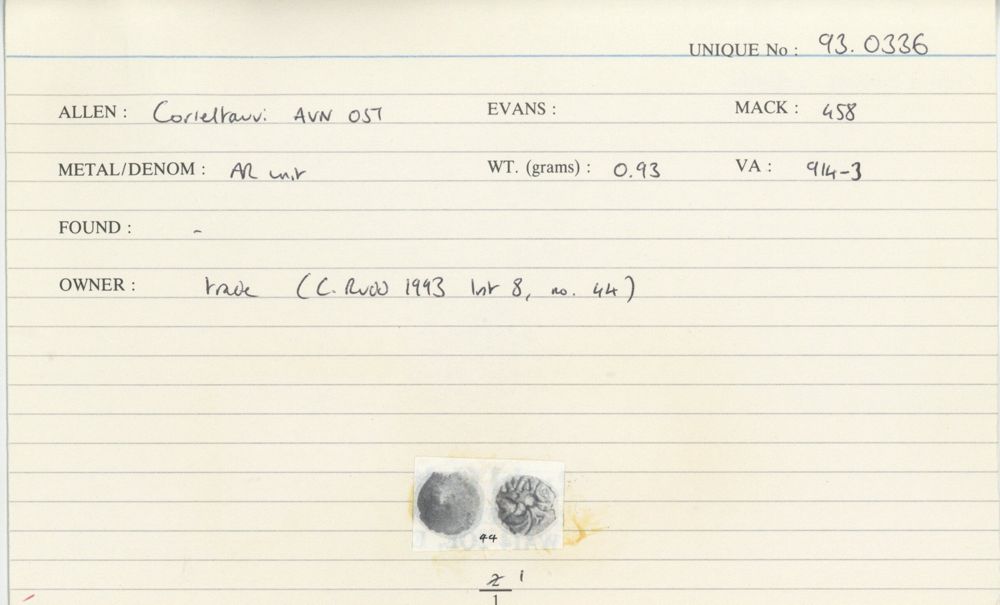 UNIQUE No : 93.0336
ALLEN : Corieltauvi AVN OST EVANS : MACK : 458
METAL/DENOM : AR unit WT. (grams) : 0.93 VA : 914-3
FOUND : -
OWNER : trade (C. RUDD 1993 list 8, no. 44)
44
2 1
1